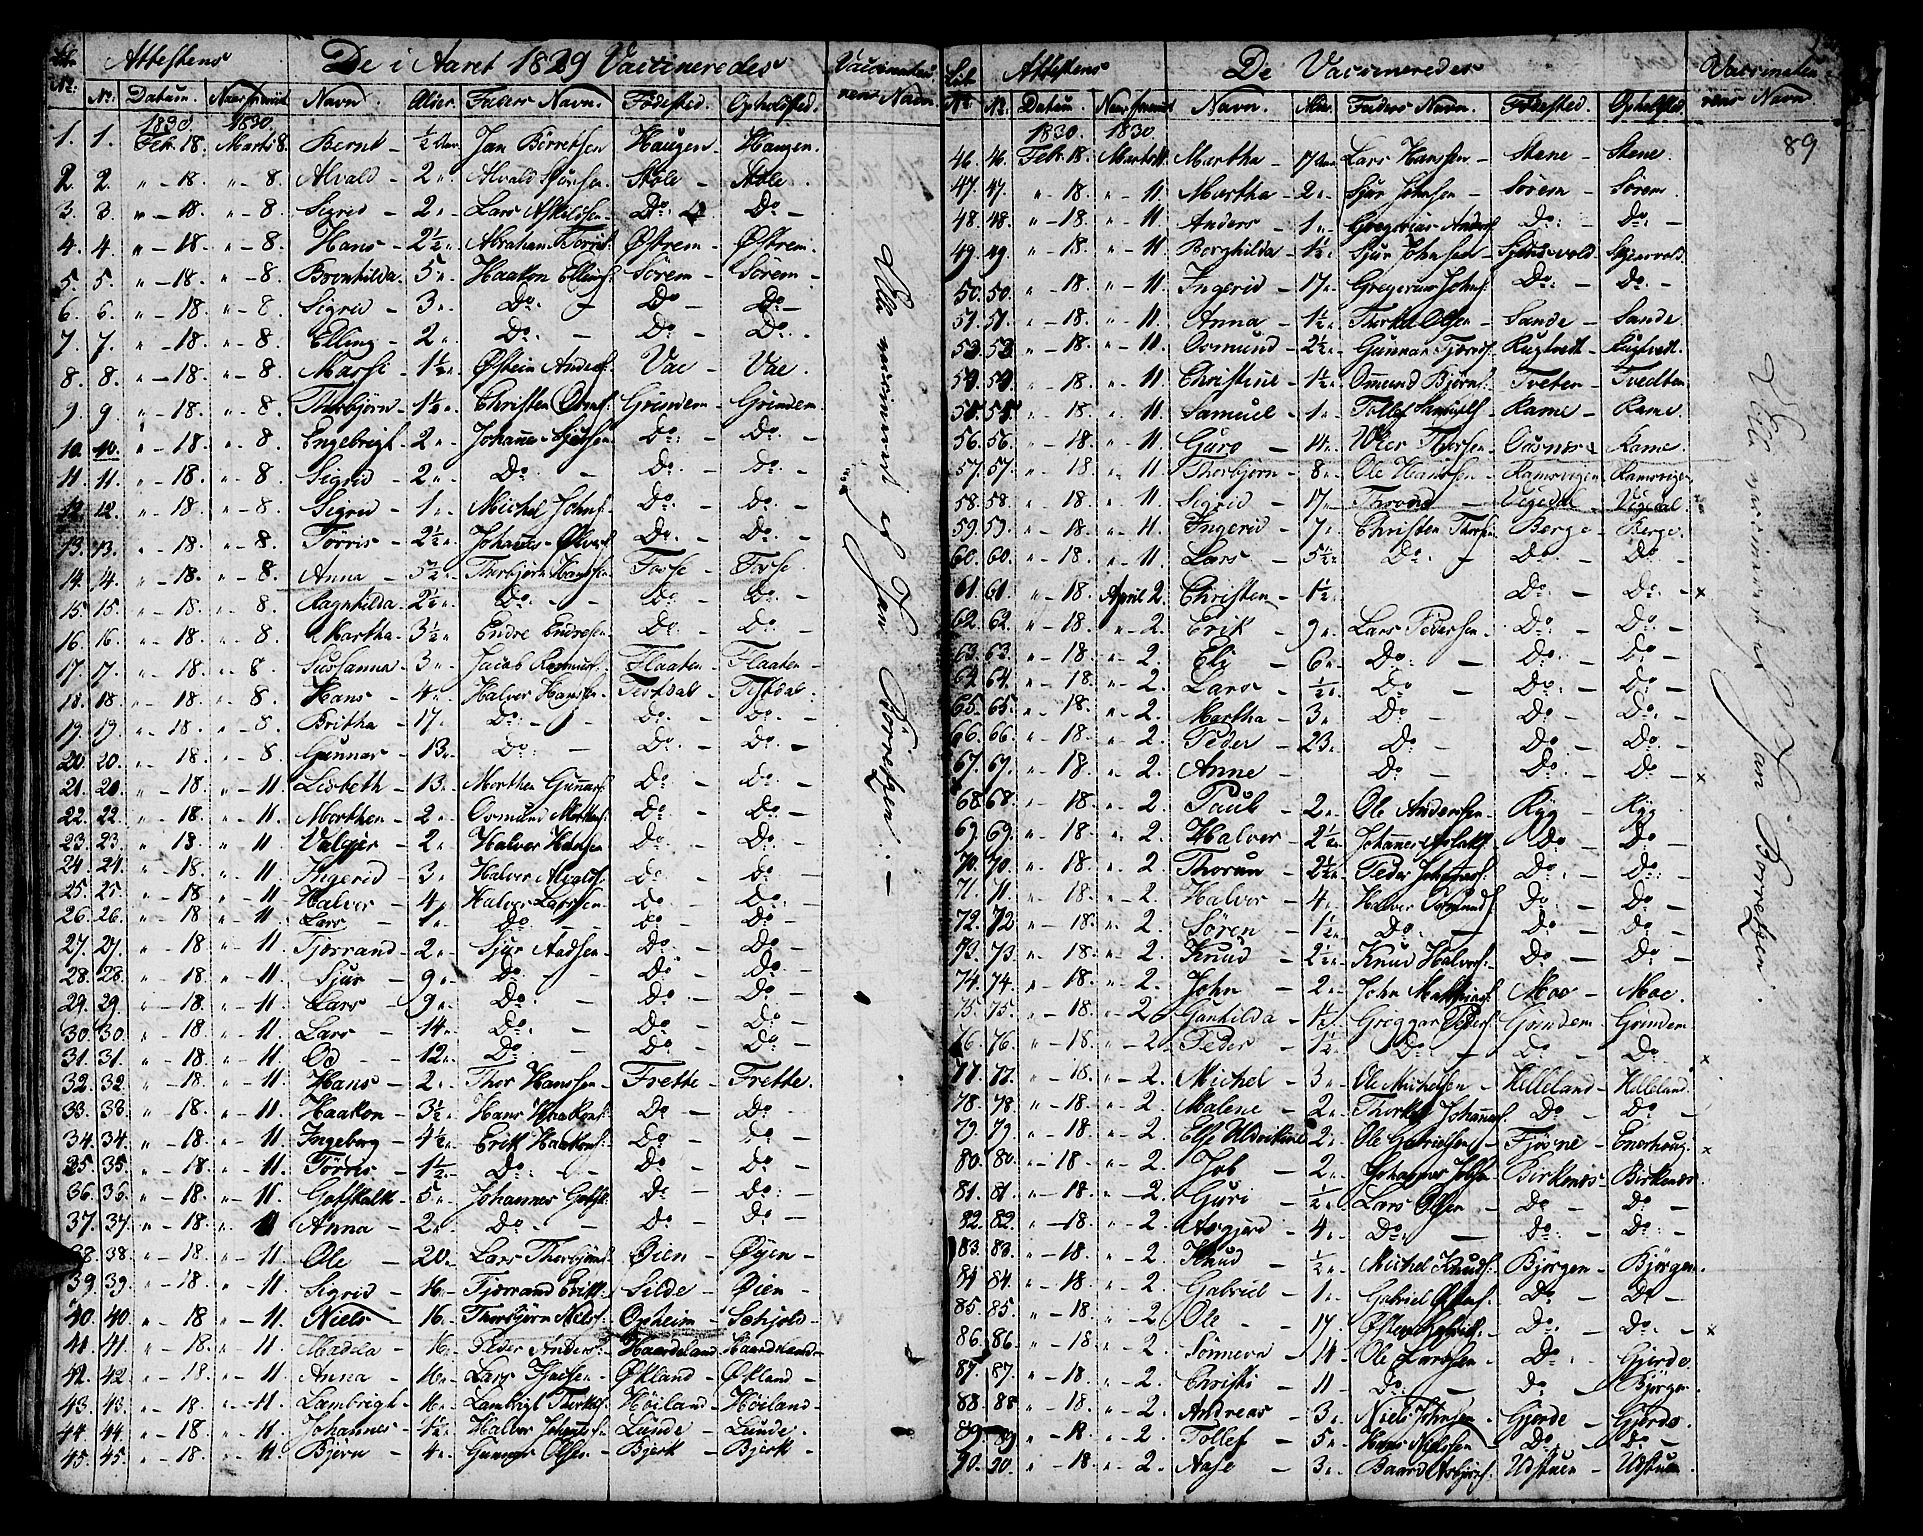 Attestens De i Aaret 1829 Vaccineredes Vaccinateu-
No: No: Datum. Navn. Alder. Faders Navn. Fødested. Opholdsted. rens Navn
1830 1830
1. 1. Febr. 18. Marts 8. Bernt - ½ Aar Jan Børretsen Haugen - Haugen.
2. 2. " - 18. " - 8. Alvald - 2 " Støle - Støle.
3. 3. " - 18. " - 8. Sigrid - 2 " Lars Do: Do -
4. 4. " - 18. " - 8. Hans - 2½ " Abraham Østrem - Østrem.
5. 5. " - 18. " - 8. Bronhilda. 5 " Haakon Ellings: Sørem - Sørem -
6. 6. " - 18. " - 8. Sigrid - 3 " Do: - Do - Do -
7. 7. " - 18. " - 8. Elling - 2 " Do: - Do. - Do.
8. 8. " - 18. " - 8. 1½ " Østein Anders: Vae - Vae.
9. 9 " - 18. " - 8. Thorbjørn - 1½ " Christen Grindem - Grindem
10. 10. " - 18. " - 8. Engebrigt - 2 " Do: - Do. -
11. 11. " - 18. " - 8. Sigrid - 2 " Do - Do: - Do: -
12. 12. " - 18. " - 8. Sigrid - 1 " Michel Johns: Do. - Do: -
13. 13. " - 18. " - 8. Tørris - 2½ " Johannes Do. - Do. -
14. 14. " - 18. " - 8. Anna - 5½ " Thorbjørn Hanssen
15. 15. " - 18. " - 8. Ragnhilda. 2½ " Do: - Do - Do -
16. 16. " - 18. " - 8. Martha. 3½ " Endre Endresen Do: - Do: -
17. 17. " - 18. " - 8. Susanna - 3 " Jacob Rasmus: Flaaten - Flaaten -
18. 18 " - 18. " - 8. Hans - 4 " Halver Hanssen
19. 19. " - 18. " - 8. Britha - 17. Do: - Do. - Do. -
20. 20. " - 18. " - 8 Gunnar - 13. Do: - Do: - Do: -
21. 21. " - 18 " - 11. Lisbeth - 13. Morthen Gunnars: Do: - Do: -
22. 22. " - 18. " - 11. Morthen - 2 " Osmund Do: - Do: -
23. 23. " 18. " 11. 2 " Halver Hansen Do: - Do: -
24. 24. " - 18. " - 11. Ingerid - 3 " Halver Alvalds: Do: - Do: -
25. 25 " - 18. " - 11. Halver - 4 " Halver Larssen Do: - Do: -
26. 26. " - 18 " - 11. Lars - 1 " Do: - Do: - Do -
27. 27. " - 18. " - 11. Tjørrand - 2 " Sjur Aadsen - Do: - Do -
28. 28. " - 18. " - 11. Sjur - 9 " Do - Do: - Do: -
29. 29. " - 18. " - 11. Lars - 9 " Do: - Do: - Do: -
30. 30. " - 18. " - 11. Lars - 14 " Do: - Do: - Do: -
31. 31. " - 18. " - 11. Od - 12 " Do - Do: - Do: -
32. 32. " - 18. " - 11. Hans - 2 " Thor Hanssen - Frette - Frette.
33. 33. " - 18. " - 11. Haakon - 3½ " Hans Haakons: Do - Do: -
34. 34. " - 18. " - 11. Ingeborg - 4½ " Erik Haakons: Do: - Do: -
35. 35. " - 18. " - 11. Tørris - 1½ " Do: - Do: - Do: -
36. 36. " - 18. " - 11. Gotskalk - 5 " Johannes Do - Do: -
37. 37. " - 18. " - 11 Anna - 2 " Do - Do: - Do: -
38. 38. " - 18. " - 11. Ole - 20. Lars Thorbjørns: Øien - Øyen -
39. 39. " - 18. " - 11. Sigrid - 16. Tjørrand Silde - Øien -
40. 40. " - 18 " - 11. Niels - 16. Thorbjørn Niels: Opheim -
41. 41. " - 18. " - 11. Madela - 16. Peder Anders: Haardeland - Haardeland -
42. 42. " - 18. " - 11. Anna - 16. Lars Økland - Økland -
43. 43. " - 18. " - 11. Lambrigt - 16. Lambrigt Høiland - Høiland -
44. 44. " - 18. " - 11. Johannes - 1½ " Halver Lunde - Lunde.
45. 45. " - 18. " - 11. Bjørn - 4 " Gunnar Olsen - Bjerk - Bjerk -
Alle vaccinerede af Jan Børretzen. -
Attestens De Vaccineredes Vaccinateu-
No: No: Datum Navn. Alder. Faders Navn. Fødested. Opholdsted. rens Navn
89
1830. 1830
46. 46. Febr. 18. Marts 11. Martha - 17 Aar Lars Hanssen - Stene - Stene.
47. 47. " - 18. " - 11. Martha - 2 " Sjur Johnsen - Sørem - Sørem.
48. 48. " - 18. " - 11. Anders - 1 " Gregorius Anders: Do: - Do: -
49. 49. " - 18. " - 11. Berghilda - 1½ Sjur Johnsen -
50. 50. " - 18. " - 11. Ingerid - 17. Gregorius Johns: Do: - Do: -
51. 51. " - 18. " - 11. Anna - 1½ " Thorkel Olsen - Sande - Sande
53. 53. " - 18. " - 11. Osmund - 2½ " Gunnar
59. 59. " - 18. " - 11. Christine - 1½ " Omund Bjørns: Tveten - Tvedten
55. 55. " - 18. " - 11. Samuel - 1 " Tollef Samuels: Rame - Rame.
56. 56. - 18. " - 11. Guro - 14. Rame.
57. 57. " - 18. " - 11. Thorbjørn - 8 " Ole Hanssen - Ramsvigen Ramsvigen
58. 58. " - 18. " - 11. Sigrid - 17. Vigedal Vigedal
59. 59. " - 18. " - 11. Ingerid - 7 " Christen Berge - Berge.
60. 60. " - 18. " - 11. Lars - 5½ Do: - Do - Do -
61. 61. " - 18. April 2. Christen - 1½ Do. - Do. - x
62. 62. " - 18. " - 2. Erik - 9 " Lars Pedersen - Do: - Do: -
63. 63. " - 18. " - 2. Eli - 6 " Do: - Do: - Do: -
64. 64. " - 18. " - 2. Lars - ½ " Do - Do: - Do: -
65. 65. " - 18. " - 2. Martha - 3 " Do - Do: - Do: -
66. 66. " - 18. " - 2. Peder - 23. Do - Do. - Do: -
67. 67. " - 18. " - 2. Anne - Do - Do: - Do: - x
68. 68. " - 18. " - 2. Paul - 2 " Ole Andersen - Ryg - Ryg
69. 69. " - 18. " - 2. Halver - 2½ Johannes Aslaks: Do - Do -
70. 70. " - 18. " - 2 Thorun - 2½ Peder Johannes: Do: - Do -
71. 71. " - 18. " - 2. Halver - 4 " Halver Osmunds: Do: - Do: -
72. 72 " - 18. " - 2. Sören - 1½ Do: - Do: - Do -
73. 73. " - 18. " - 2. Knud - 2½ " Knud Halvers: Do - Do -
74. 74. " - 18. " - 2. John - 2 " John Mathias: Moe - Moe.
75. 75. " - 18. " - 2 Gunhilda - 1½ Greggar Peders: Grindem - Grindem
76. 76. " - 18. " - 2 Peder - 1½ Do - Do - Do. x
77. 77. " - 18. " - 2. Michel - 3 " Ole Michelsen - Helleland - Helleland
78. 78 " - 18. " - 2. Malene - 2 " Thorkel Johannes: Do - Do -
79. 79. " - 18. " - 2. Else 2. Ole Gabrielsen - Fjøvne - x
80. 80. " - 18. " - 2. Job - 2 " Birkenes - Birkenes
81. 81. " - 18. " - 2. Guri - ½ " Lars Olsen - Do - Do: -
82. 82. " - 18. " - 2. Asgjerd - 4. Do: - Do: - Do: -
83. 83. " - 18. " - 2. Knud - ½ " Michel Knuds: Bjørgen - Bjørgen.
84. 84. " - 18. " - 2. Gabriel - 1 " Gabriel Do - Do -
85. 85. " - 18. " - 2 Ole - 17. Do: - Do. - x
86. 86. " - 18. " - 2. Sønneva - 14 Ole Larssen - Do: - Gjerde.
87. 87. " - 18. " - 2. Christi - 11 Do: - Do - Bjørgen
88. 88 " - 18. " - 2. Andreas - 3 " Niels Johnsen Gjerde - Gjerde.
89. 89 " - 18. " - 2. Tollef - 5 " Hans Nielssen - Do - Do -
90. 90. " - 18. " - 2. Aase - 3 " Baard Asbjørns: Udstuen - Udstuen
Alle vaccinerede af Jan Børretzen.